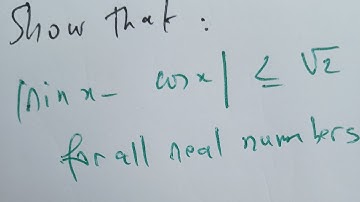 Show that :
|sin x - cos x| ≤ √2
for all real numbers